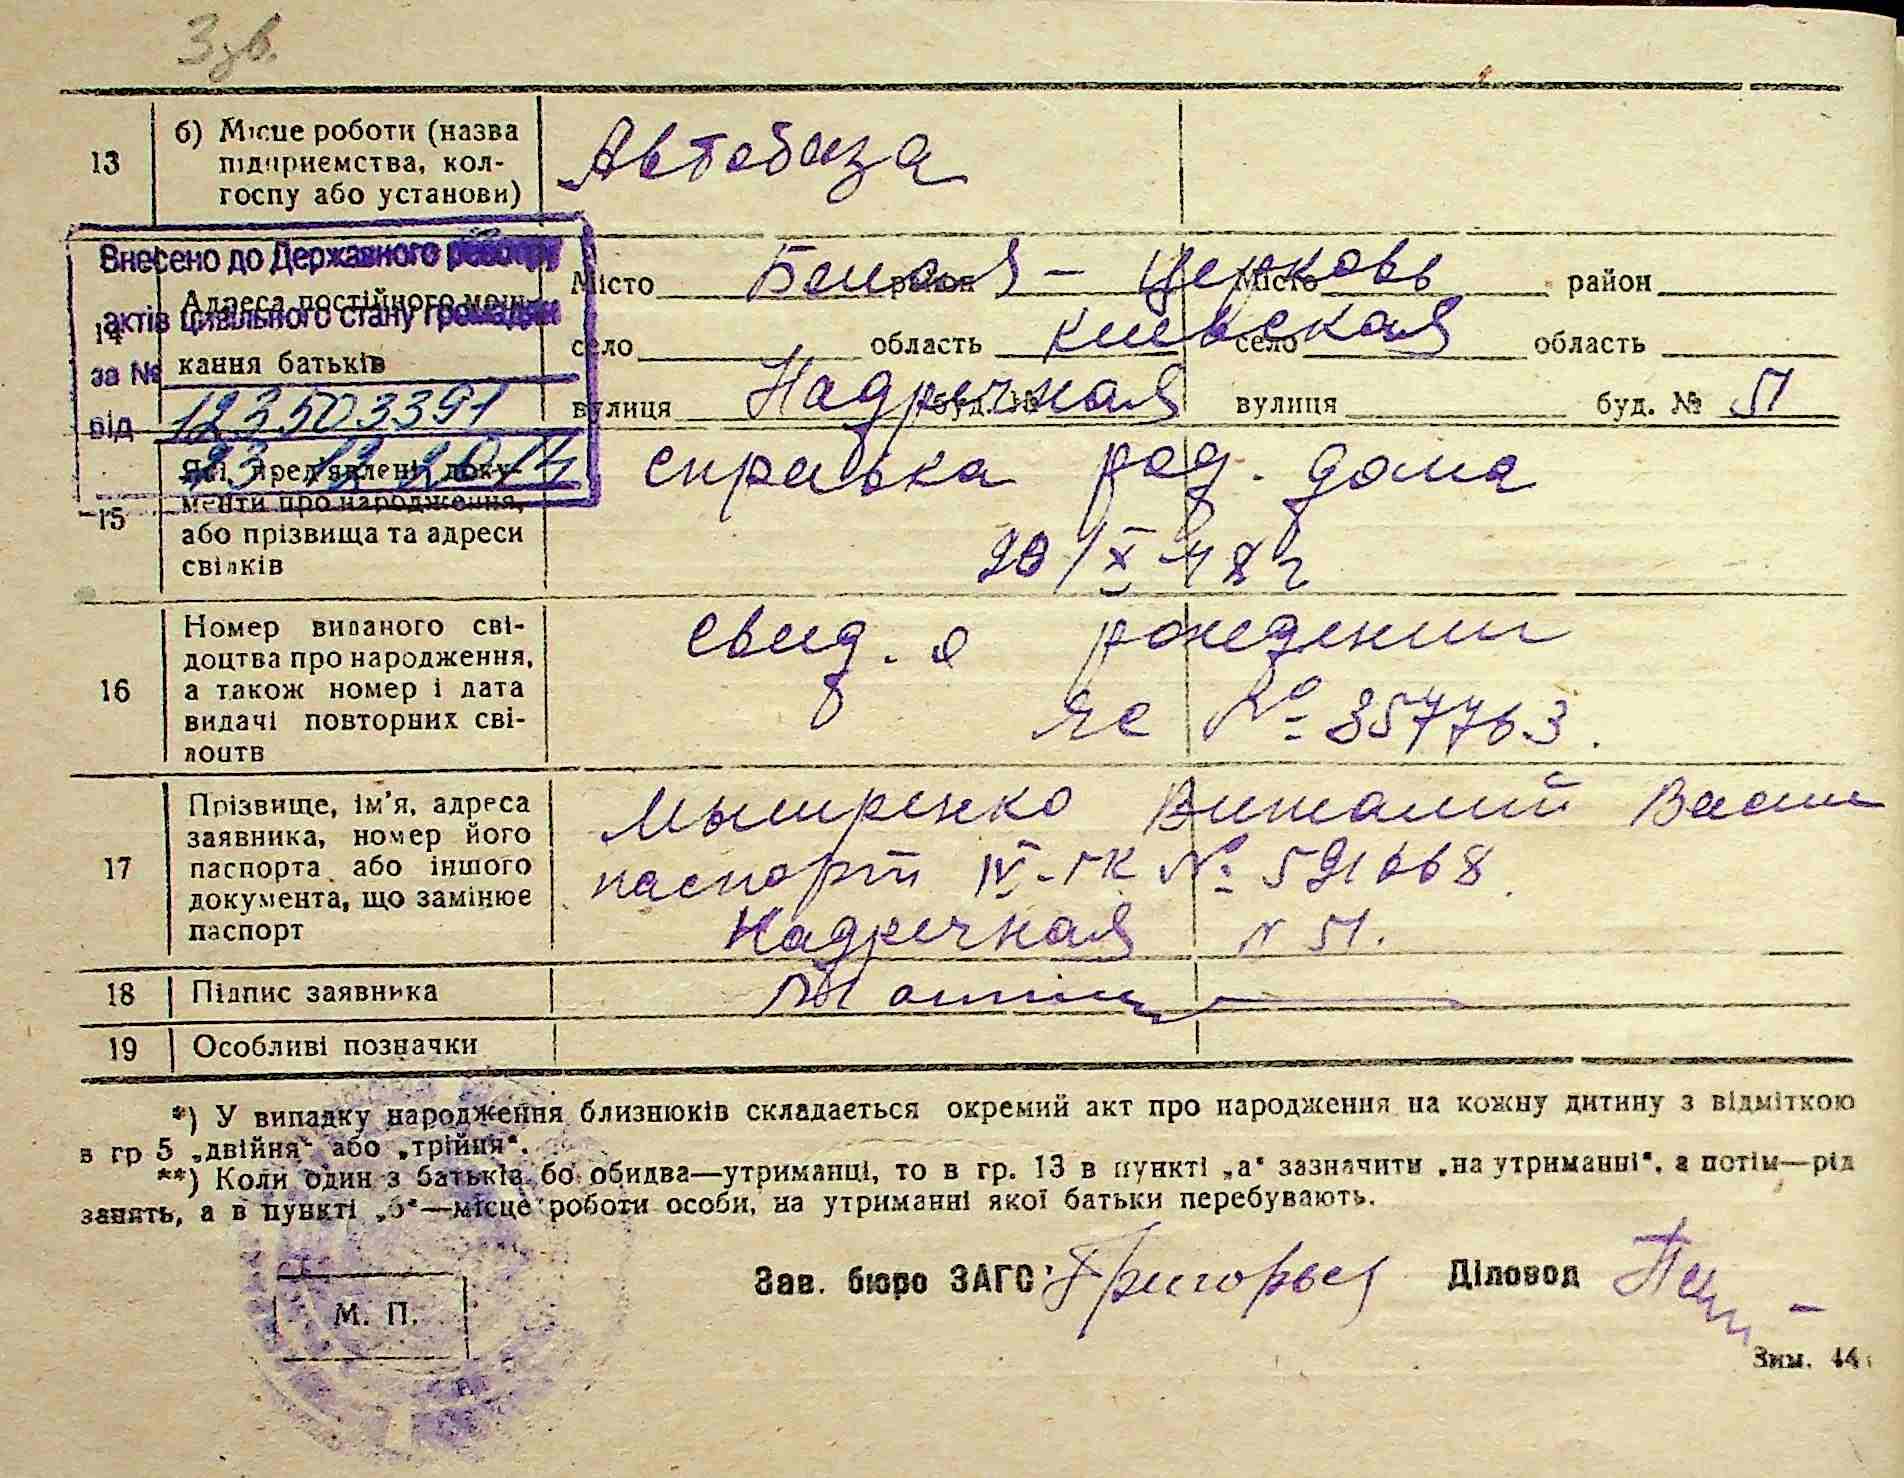 Зув.
13
б) Місце роботи (назва
підприємства, кол-
госпу або установи)
Автобаза
Внесено до Державного реєстру
актів цивільного стану громадян
за №
123503391
від
23 12 2014
14
Адреса постійного меш-
кання батьків
Місто Белая - Церковь район Місто район
село область Киевская село область
вулиця Надречная буд. № вулиця буд. № 51
15
Які пред'явлені доку-
менти про народження,
або прізвища та адреси
свідків
справка род. дома
20/X-48 г
16
Номер виданого сві-
доцтва про народження,
а також номер і дата
видачі повторних сві-
доцтв
свид. о рождении
ЯС № 857763.
17
Прізвище, ім'я, адреса
заявника, номер його
паспорта або іншого
документа, що замінює
паспорт
Виталий Васил
паспорт IV-ГК № 591668.
Надречная N 51.
18
Підпис заявника
19
Особливі позначки
*) У випадку народження близнюків складається окремий акт про народження на кожну дитину з відміткою
в гр 5 „двійня“ або „трійня“.
**) Коли один з батьків бо обидва—утриманці, то в гр. 13 в пункті „а“ зазначити „на утриманні“, а потім—рід
занять, а в пункті „б“—місце роботи особи, на утриманні якої батьки перебувають.
Зав. бюро ЗАГС Григорьев Діловод
М. П.
Зим. 44